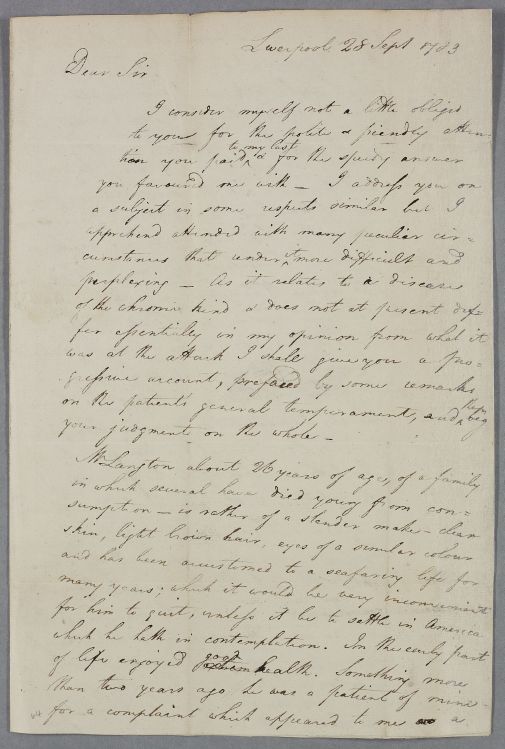 Liverpool 28 Sept 1783
Dear Sir
I consider myself not a little obliged
to you for the polite & friendly atten=
tion you paid to my last & for the speedy answer
you favoured me with — I address you on
a subject in some respects similar but I
apprehend attended with many peculiar cir=
cumstances that render it more difficult and
perplexing — As it relates to a disease
of the chronic kind & does not at present dif=
fer essentially in my opinion from what it
was at the attack I shall give you a pro=
gressive account, prefaced by some remarks
on the patient's general temperament, and then beg
your judgment on the whole —
Mr Langton about 26 years of age, of a family
in which several have died young from con=
sumption — is rather of a slender make — clear
skin, light brown hair, eyes of a similar colour
and has been accustomed to a seafaring life for
many years; which it would be very inconvenient
for him to quit, unless it be to settle in America
which he hath in contemplation. In the early part
of life enjoyed good health. Something more
than two years ago he was a patient of mine
for a complaint which appeared to me a